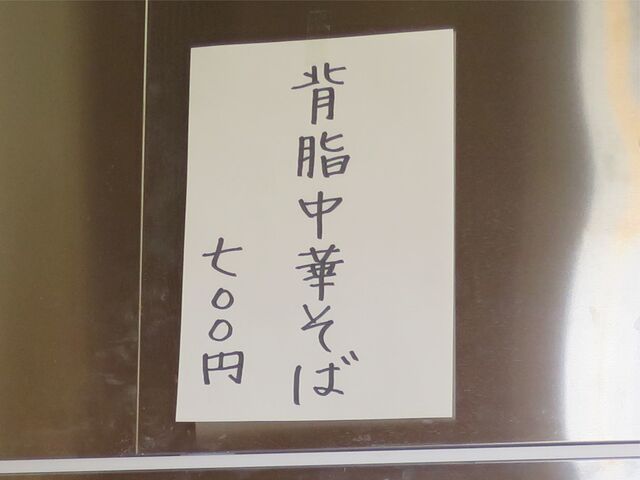 背脂中華そば
七〇〇円